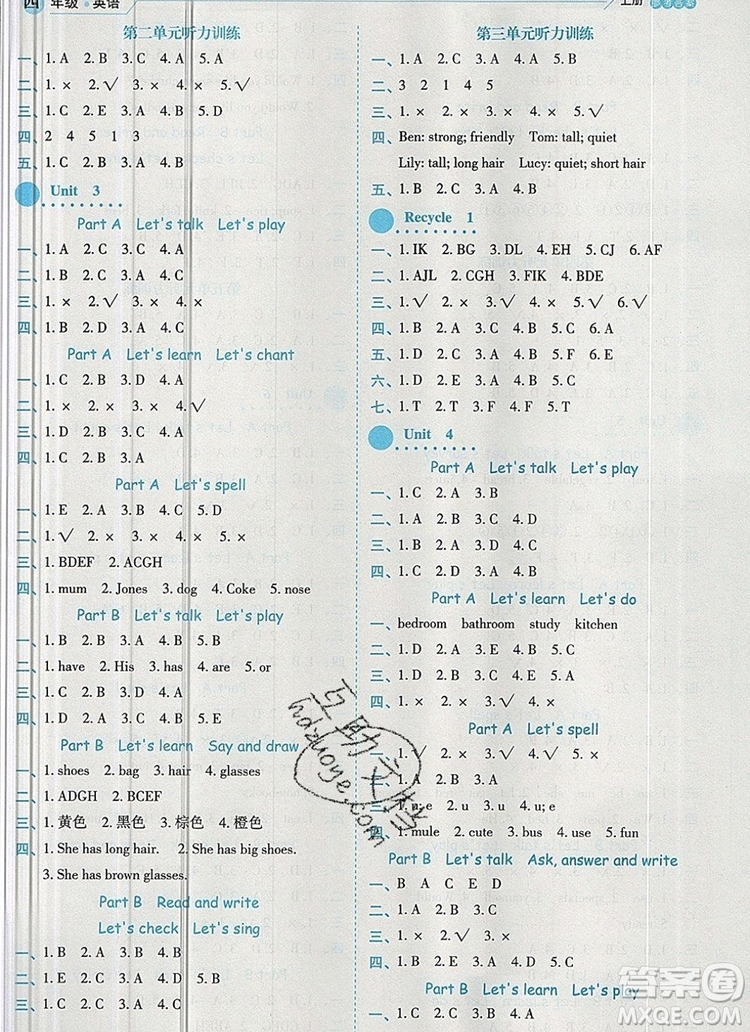 四 年级·英语
第二单元听力训练
一、1. A 2. B 3. C 4. A 5. A
二、1. × 2. √ 3. × 4. × 5. √
三、1. B 2. C 3. A 4. B 5. D
四、2 4 5 1 3
五、1. C 2. B 3. A 4. B
Unit 3
Part A Let's talk Let's play
一、1. A 2. C 3. C 4. A
二、1. B 2. C 3. A 4. B
三、1. × 2. √ 3. × 4. ×
四、1. B 2. D 3. A 4. C
Part A Let's learn Let's chant
一、1. C 2. B 3. D 4. A
二、1. × 2. × 3. × 4. √
三、1. D 2. B 3. A 4. C
四、1. C 2. B 3. A
Part A Let's spell
一、1. E 2. A 3. B 4. C 5. D
二、1. √ 2. × 3. × 4. × 5. ×
三、1. BDEF 2. ACGH
四、1. mum 2. Jones 3. dog 4. Coke 5. nose
Part B Let's talk Let's play
一、1. B 2. B 3. A 4. B 5. B
二、1. have 2. His 3. has 4. are 5. or
三、1. B 2. A 3. A 4. A
四、1. D 2. A 3. C 4. B 5. E
Part B Let's learn Say and draw
一、1. shoes 2. bag 3. hair 4. glasses
二、1. ADGH 2. BCEF
三、1. 黄色 2. 黑色 3. 棕色 4. 橙色
四、1. She has long hair. 2. She has big shoes.
3. She has brown glasses.
Part B Read and write
Let's check Let's sing
一、1. B 2. A 3. B 4. A 5. B
二、1. E 2. C 3. D 4. A 5. B
三、1. C 2. A 3. A 4. C
上册
第三单元听力训练
一、1. A 2. B 3. C 4. A 5. B
二、3 2 1 4 5
三、1. × 2. × 3. √ 4. × 5. √
四、Ben: strong; friendly Tom: tall; quiet
Lily: tall; long hair Lucy: quiet; short hair
五、1. B 2. A 3. A 4. A 5. B
Recycle 1
一、1. IK 2. BG 3. DL 4. EH 5. CJ 6. AF
二、1. AJL 2. CGH 3. FIK 4. BDE
三、1. √ 2. × 3. √ 4. √ 5. × 6. √
四、1. B 2. A 3. C 4. A 5. C 6. A
五、1. D 2. E 3. A 4. B 5. C
六、1. D 2. C 3. A 4. B
七、1. T 2. F 3. T 4. F
Unit 4
Part A Let's talk Let's play
一、1. C 2. A 3. B
二、1. A 2. C 3. C 4. D
三、1. C 2. A 3. D 4. B
四、1. C 2. A 3. B 4. A
Part A Let's learn Let's do
一、bedroom bathroom study kitchen
二、1. D 2. A 3. B 4. C 5. E
三、1. C 2. A 3. B 4. D
四、1. × 2. × 3. √ 4. ×
Part A Let's spell
一、1. √ 2. × 3. × 4. √ 5. √
二、1. C 2. A 3. B 4. A
三、1. u; e 2. u 3. u 4. u; e
四、1. mule 2. cute 3. bus 4. use 5. fun
Part B Let's talk Ask, answer and write
一、B A C E D
二、1. A 2. B 3. C 4. C 5. B
三、1. × 2. √ 3. × 4. × 5. √
四、1. B 2. A 3. A 4. B
Part B Let's learn Let's play
互助文档
hdzuoye.com
答案圈
MXQE.COM